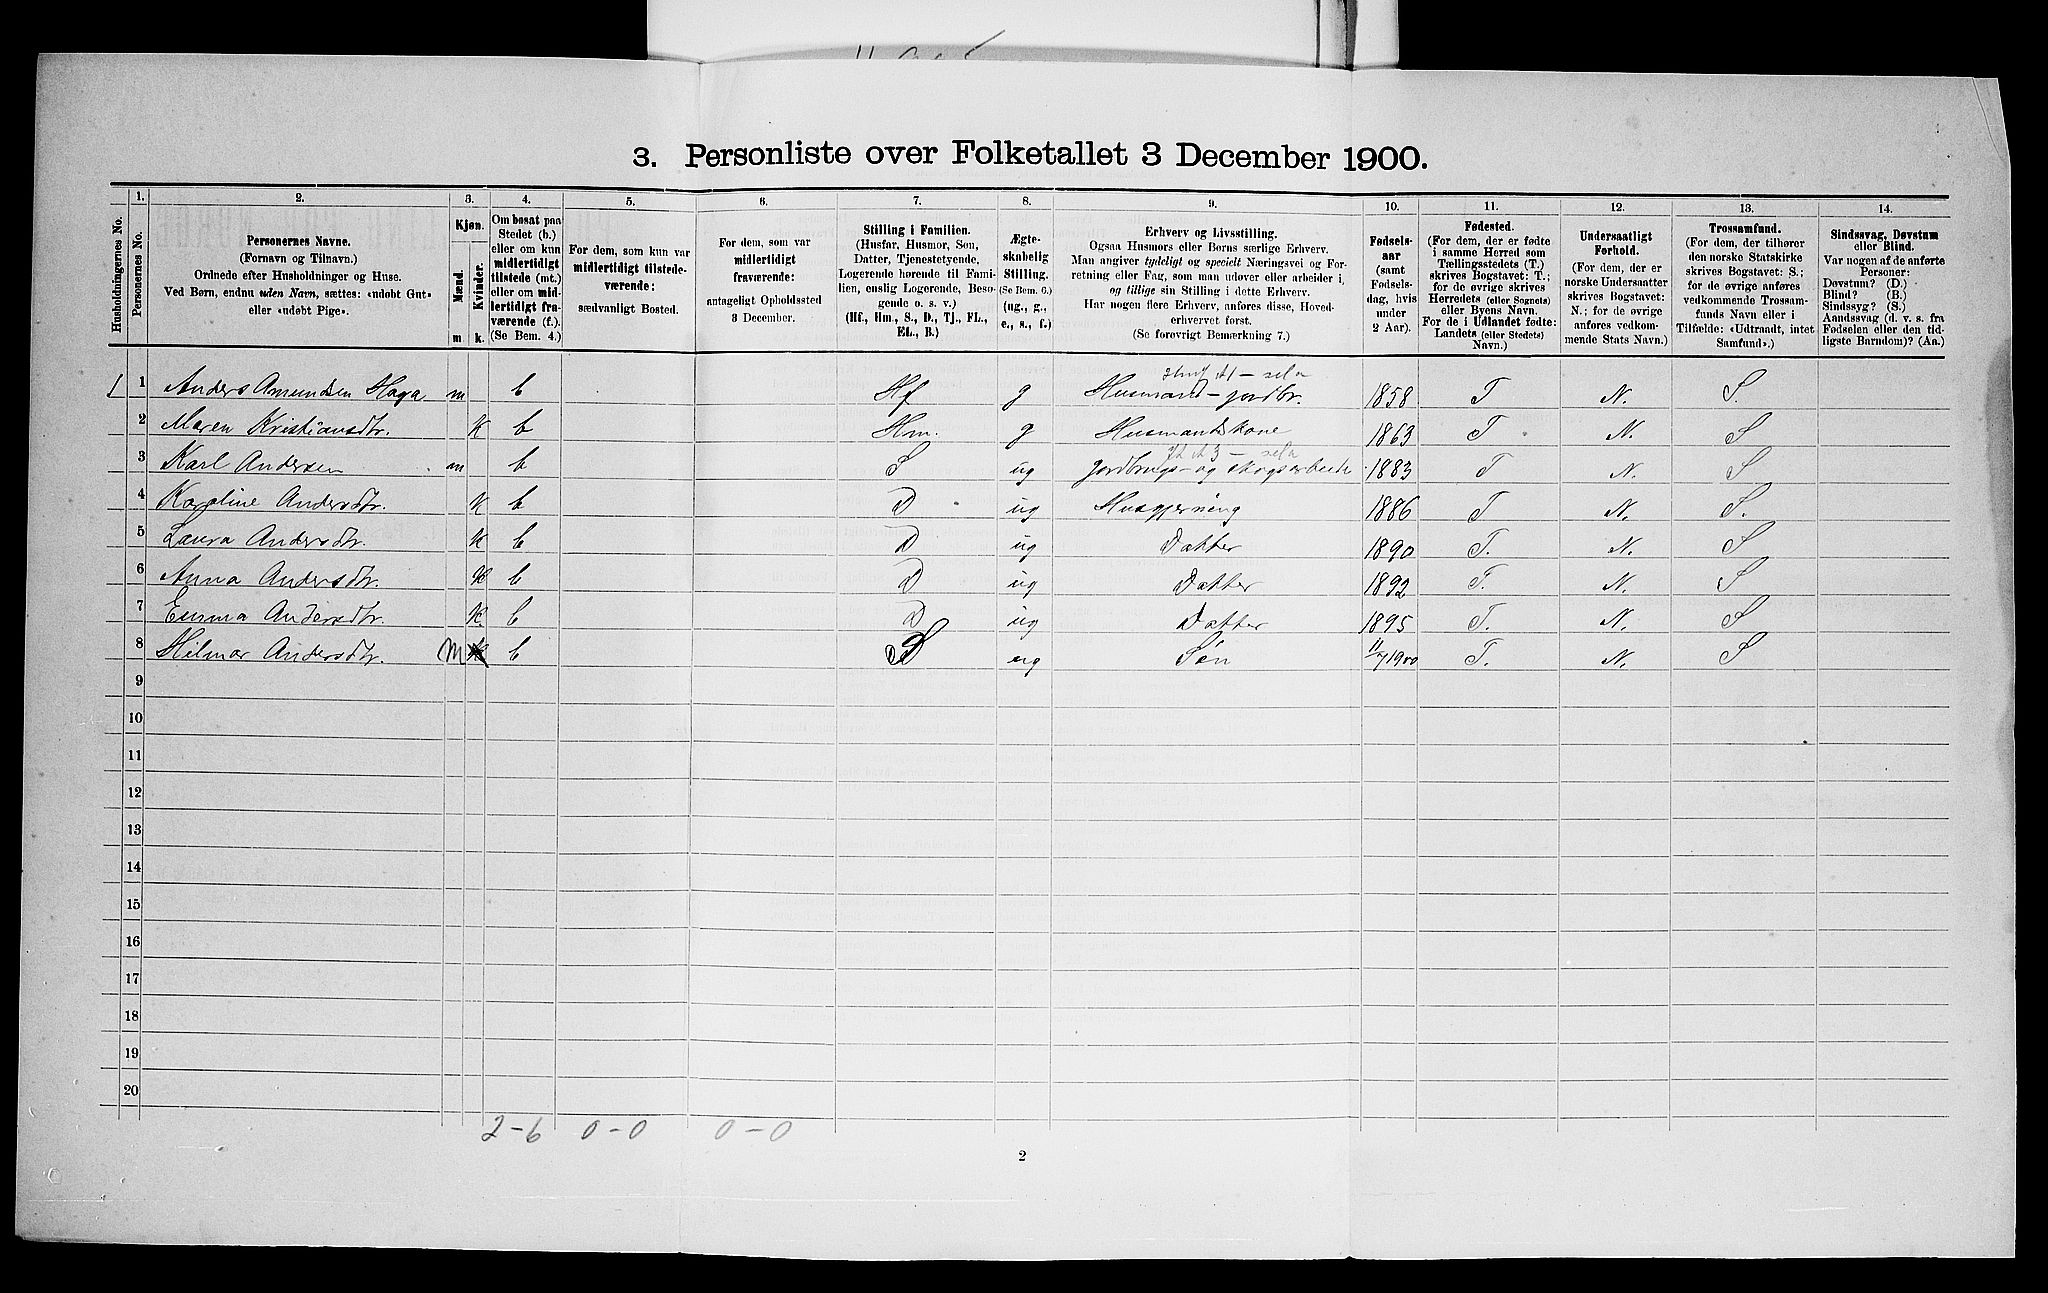 3. Personliste over Folketallet 3 December 1900.
Husholdningernes No.
1. Personernes No.
2.
Personernes Navne.
(Fornavn og Tilnavn.)
Ordnede efter Husholdninger og Huse.
Ved Børn, endnu uden Navn, sættes: «udøbt Gut»
eller «udøbt Pige».
3.
Kjøn.
Mænd. Kvinder.
m. k.
4.
Om bosat paa
Stedet (b.)
eller om kun
midlertidigt
tilstede (mt.)
eller om mid-
lertidigt fra-
værende (f.).
(Se Bem. 4.)
5.
For dem, som kun var
midlertidigt tilstede-
værende:
sædvanligt Bosted.
6.
For dem, som var
midlertidigt
fraværende:
antageligt Opholdssted
3 December.
7.
Stilling i Familien.
(Husfar, Husmor, Søn,
Datter, Tjenestetyende,
Logerende hørende til Fami-
lien, enslig Logerende, Besø-
gende o. s. v.)
(Hf., Hm., S., D., Tj., FL.,
EL., B.)
8.
Ægte-
skabelig
Stilling.
(Se Bem. 6.)
(ug., g.,
e., s., f.)
9.
Erhverv og Livsstilling.
Ogsaa Husmors eller Børns særlige Erhverv.
Man angiver tydeligt og specielt Næringsvei og For-
retning eller Fag, som man udøver eller arbeider i,
og tillige sin Stilling i dette Erhverv.
Har nogen flere Erhverv, anføres disse, Hoved-
erhvervet først.
(Se forøvrigt Bemærkning 7.)
10.
Fødsels-
aar
(samt
Fødsels-
dag, hvis
under
2 Aar).
11.
Fødested.
(For dem, der er fødte
i samme Herred som
Tællingsstedets (T.)
skrives Bogstavet: T.;
for de øvrige skrives
Herredets (eller Sognets)
eller Byens Navn.
For de i Udlandet fødte:
Landets (eller Stedets)
Navn.)
12.
Undersaatligt
Forhold.
(For dem, der er
norske Undersaatter
skrives Bogstavet:
N.; for de øvrige
anføres vedkom-
mende Stats Navn.)
13.
Trossamfund.
(For dem, der tilhører
den norske Statskirke
skrives Bogstavet: S.;
for de øvrige anføres
vedkommende Trossam-
funds Navn eller i
Tilfælde: «Udtraadt, intet
Samfund».)
14.
Sindssvag, Døvstum
eller Blind.
Var nogen af de anførte
Personer:
Døvstum? (D.)
Blind? (B.)
Sindssyg? (S.)
Aandssvag (d. v. s. fra
Fødselen eller den tid-
ligste Barndom)? (Aa.)
1 1 Anders Amundsen Haga m b Hf g Husmand-jordbr. 1858 T N. S.
2 Maren Kristiansdtr. k b Hm. g Husmandskone 1863 T N. S
3 Karl Andersen m b S ug Jordbrugs- og skogsarbeide 1883 T N. S
4 Karoline Andersdtr. k b D ug Husgjerning 1886 T N. S.
5 Laura Andersdtr. k b D ug Datter 1890 T. N. S
6 Anna Andersdtr. k b D ug Datter 1892 T. N. S
7 Emma Andersdtr. k b D ug Datter 1895 T. N. S
8 Hilmar Andersdtr. m b S ug Søn 11/7 1900 T. N. S
9
10
11
12
13
14
15
16
17
18
19
20
2-6 0-0 0-0
2